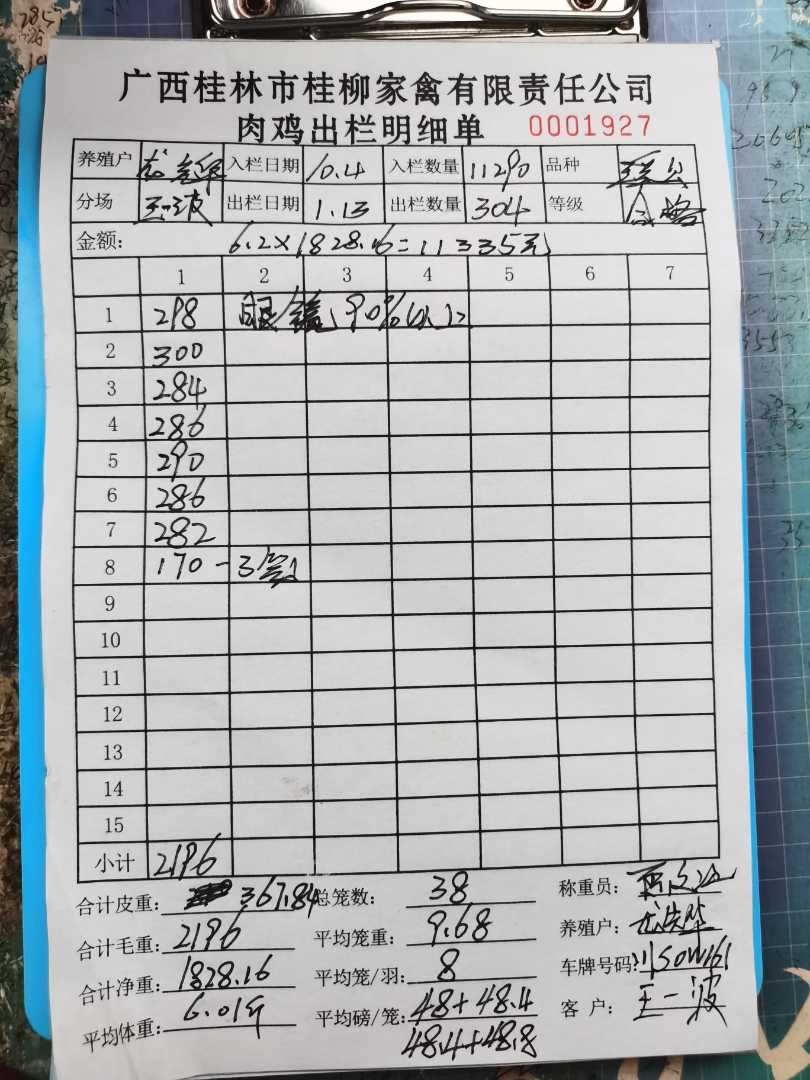 广西桂林市桂柳家禽有限责任公司
肉鸡出栏明细单 0001927
养殖户 入栏日期 10.4 入栏数量 11290 品种
分场 王一波 出栏日期 1.13 出栏数量 304 等级 合格
金额: 6.2×1828.16=11335元
1 2 3 4 5 6 7
1 298 90%以上
2 300
3 284
4 286
5 290
6 286
7 282
8 170-3笼
9
10
11
12
13
14
15
小计 2196
合计皮重: 367.84 总笼数: 38 称重员:
合计毛重: 2196 平均笼重: 9.68 养殖户:
合计净重: 1828.16 平均笼/羽: 8 车牌号码:
平均体重: 6.01斤 平均磅/笼: 48+48.4 客户: 王一波
48.4+48.8